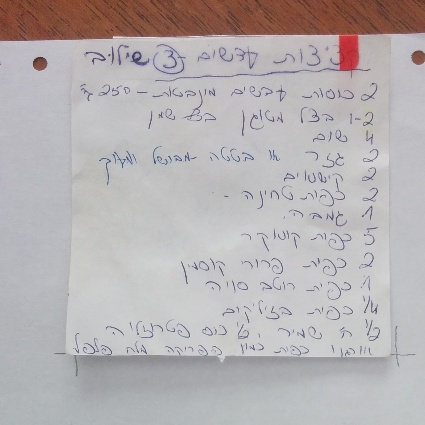 קציצות עדשים (3) שילוב
2 כוסות עדשים מונבטות – 250 ג'
1-2 בצל מטוגן בצ שמן
4 שום
2 גזר או בטטה - מבושל ומעוך
2 קישואים
2 כפית טחינה -
1 גמבה
5 כפית קווקר
2 כפית פרורי קוסמין
1 כפית רוטב סויה
1/4 כפית בזיליקום
1/2 ח' שמיר, 1/2 כוס פטרוזיליה
כפית כמון פפריקה מלח פלפל